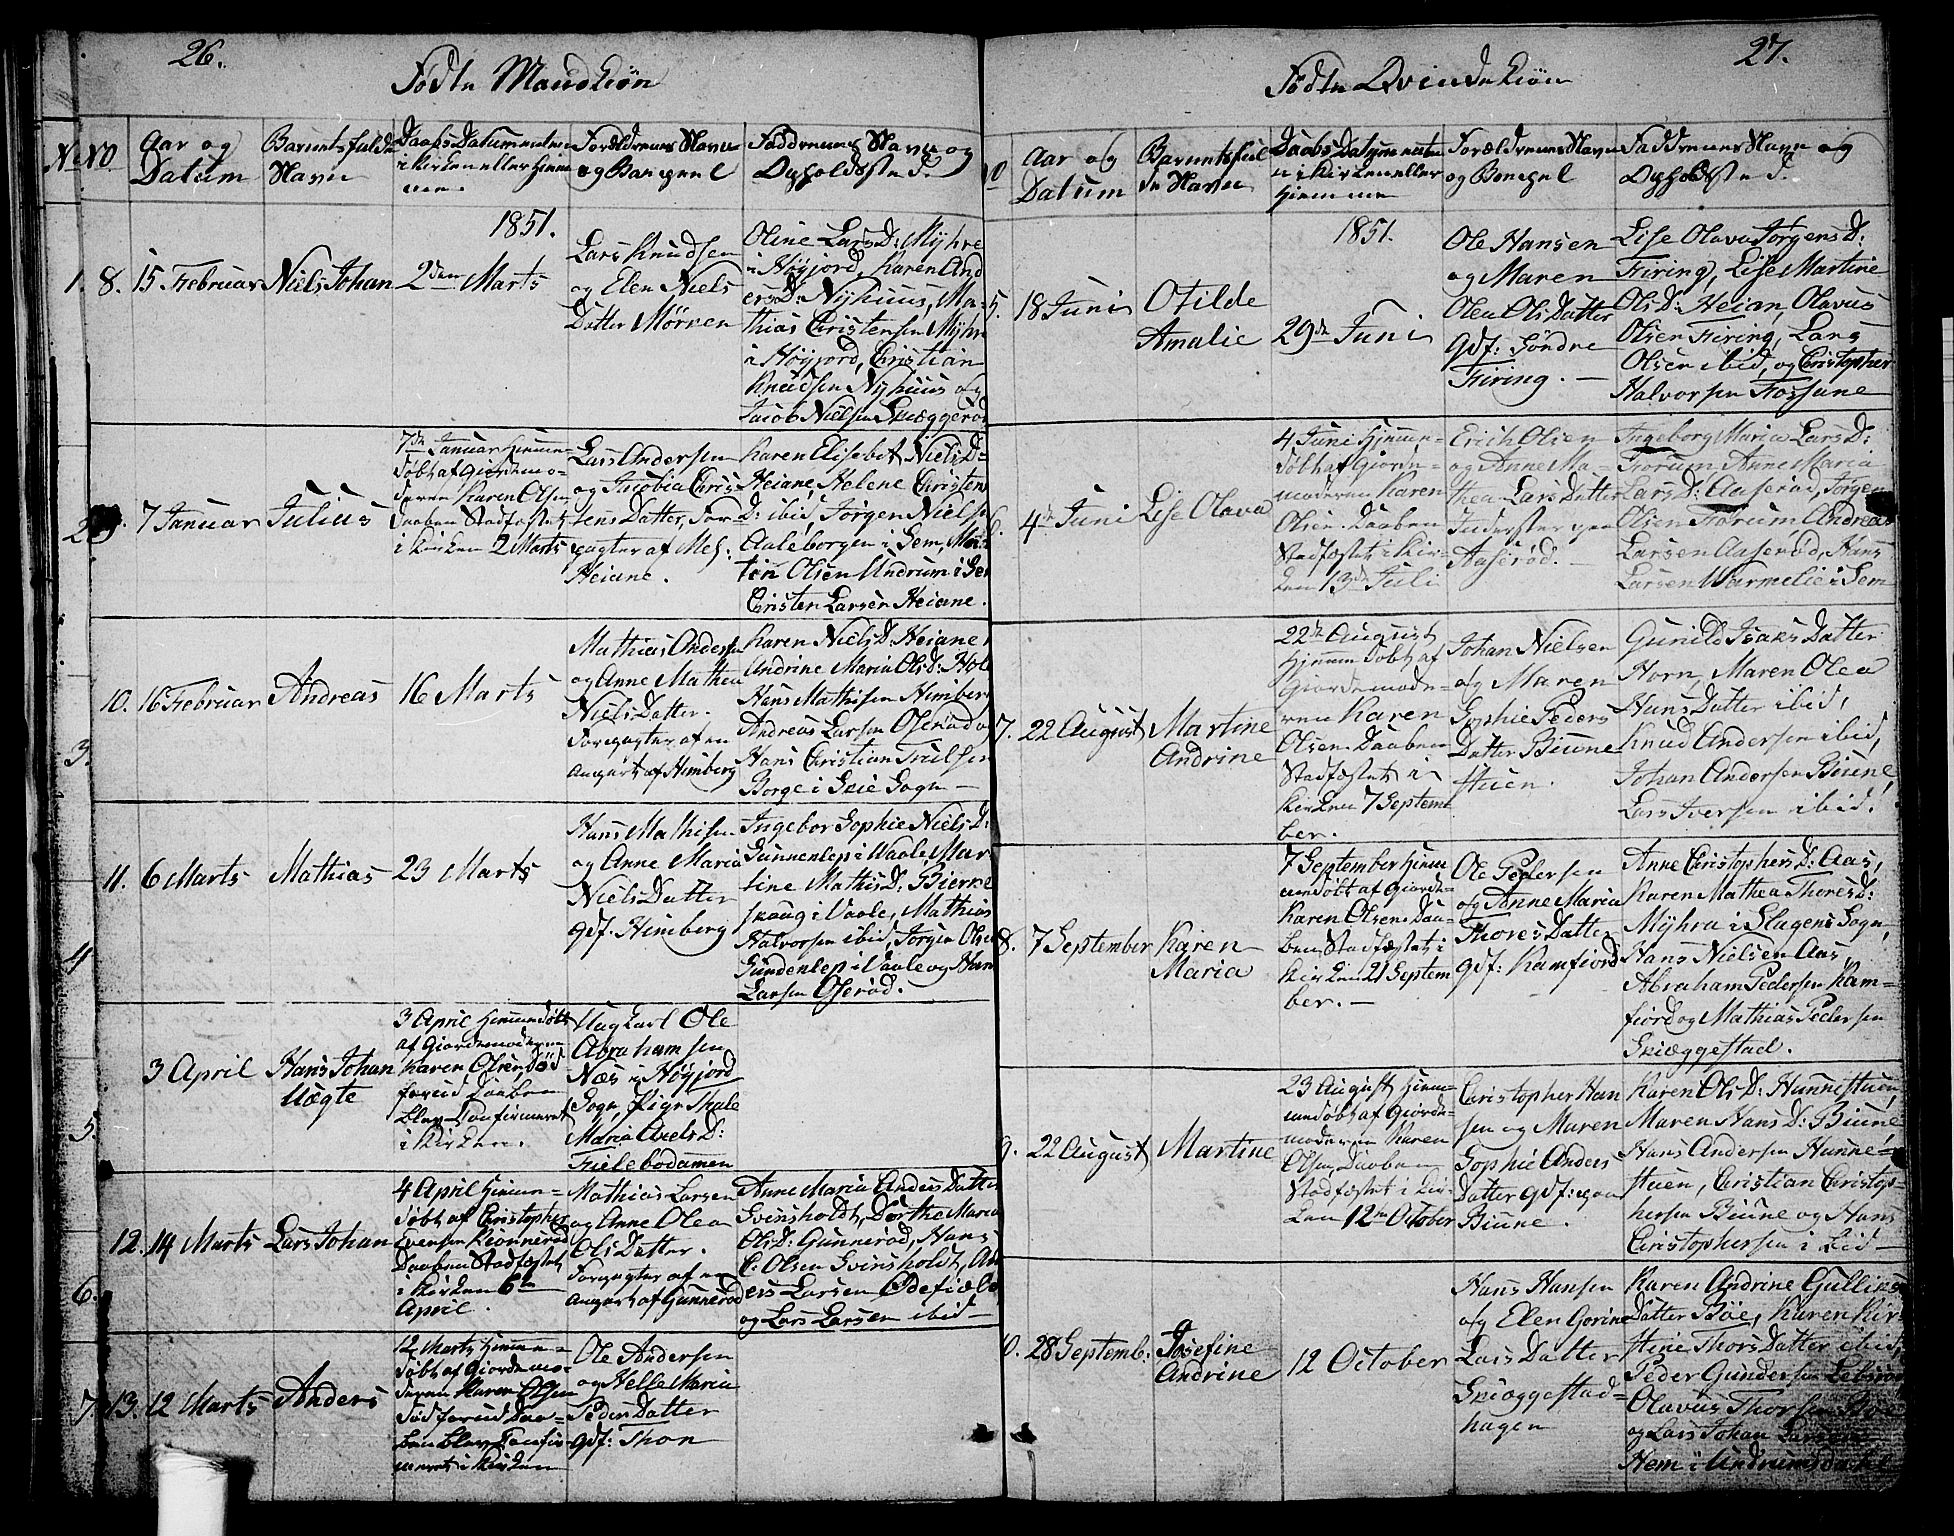 26.
Födte Mandkiön
No
Aar og
Datum
Barnets fulde
Navn
Daabs Datum enten
i Kirken eller Hjem
me.
Forældrenes Navn
og Borgerl
Faddrenes Navn og
Opholdssted.
1851.
1. 8. 15 Februar
Niels Johan
2den Marts
Lars Knudsen
og Elen Niels
Datter Mörken
Oline Lars D: Myhre
i Höyjord, Karen And
ers D: Nyhuus, Ma-
thias Christensen Myhre
i Höyjord, Christian
Knudsen Nyhuus og
Jacob Nielsen Skiæggeröd
2 9. 7 Januar
Julius
7de Januar Hjemme-
döbt af Giordemo-
deren Karen Olsen
Daaben Stadfæstet
i Kirken 2 Marts
Lars Andersen
og Jacobia Chris
tens Datter, For
pagter af Mel:
Heiane.
Karen Elisebet Niels D-
Heiane, Helene Christens
D: ibid, Jörgen Nielsen
Aaleborgen i Sem, Mar
tin Olsen Undrum i Sem
Christen Larsen Heiane.
3.
10. 16 Februar
Andreas
16 Marts
Mathias Andersen
og Anne Mathea
Niels Datter.
Forpagter af en
Anpart af Himberg
Karen Niels D: Heiane,
Andrine Maria Ols D: Hol
Hans Mathisen Himberg
Andreas Larsen Oseröd og
Hans Christian Trulsen
Borge i Skie Sogn—
4
11. 6 Marts
Mathias
23 Marts
Hans Mathisen
og Anne Maria
Niels Datter
gdf. Himberg
Ingebor Sophie Niels D:
Gunnenlep i Vaale, Mar
tine Mathis D: Bierke
skoug i Vaale, Mathias
Halvorsen ibid, Jörgen Olsen
Gundenlep i Vaale og Hans
Larsen Oseröd.
5.
3 April
Hans Johan
Uægte
3 April Hjemmedöbt
af Giordemoderen
Karen Olsen, död
forend Daaben
blev Confirmeret
i Kirken.
Ungkarl Ole
Abrahamsen
Næs i Höyjord
Sogn, Pige
Maria Axels D:
6.
12. 14 Marts
Lars Johan
4 April Hjemme-
döbt af Christopher
Evensen Kiönneröd
Daaben Stadfæstet
i Kirken 6te
April.
Mathias Larsen
og Anne Olea
Ols Datter.
Forpagter af en
Anpart af Gunneröd
Anne Maria Anders Datter
Svinsholdt, Dorthe Maria
Ols D: Gunneröd, Hans
C. Olsen Svinsholdt, An
ders Larsen Ödefield
og Lars Larsen ibid—
7.
13. 12 Marts
Anders
12 Marts Hjemme-
döbt af Giordemo-
deren Karen Olsen
Död forend Daa-
ben blev Confir-
meret i Kirken
Ole Andersen
og Helle Maria
Peders Datter
gdf: Thon
27.
Födte Qvindekiön
Aar og
Datum
Barnets ful
de Navn
Daabs Datum enten
i Kirken eller
Hjemme
Forældrenes Navn
og Borgerl
Faddrenes Navn og
Opholdssted.
1851.
5. 18 Juni
Otilde
Amalie
29de Juni
Ole Hansen
og Maren
Olea Ols Datter
gdf: Söndre
Firing.—
Lise Olava Jörgens D:
Firing, Lise Martine
Ols D: Heian, Olavus
Olsen Firing, Lars
Olsen ibid, og Christopher
Halvorsen Fossane
6. 4de Juni
Lise Olava
4 Juni Hjemme-
döbt af Giorde-
moderen Karen
Olsen. Daaben
Stadfæstet i Kir-
ken 13de Juli
Erich Olsen
og Anne Ma-
thea Lars Datter
Inderster paa
Aaseröd.—
Ingeborg Maria Lars D:
Forum, Anne Maria
Lars D: Aaseröd, Jörgen
Olsen Forum, Andreas
Larsen Aaseröd, Hans
Larsen Warmelie i Sem
7. 22 August
Martine
Andrine
22de August
Hjemmedöbt af
Giordemode-
ren Karen
Olsen Daaben
Stadfæstet i
Kirken 7 Septem
ber.
Johan Nielsen
og Maren
Sophie Peders
Datter Biune
stuen.
Gunild Isaks Datter
Horn, Maren Olea
Hans Datter ibid,
Knud Andersen ibid,
Johan Andersen Biune,
Lars Iversen ibid.
8. 7 September
Karen
Maria
7 September Hjem
medöbt af Giorde-
Karen Olsen Daa-
ben Stadfæstet i
Kirken 21 Septem
ber.—
Ole Pedersen
og Anne Maria
Thores Datter
gdf: Kamfiord
Anne Christophers D: Aas,
Karen Mathea Thores D:
Myhra i Slagens Sogn,
Hans Nielsen Aas,
Abraham Pedersen Kam-
fiord og Mathias Pedersen
Skiæggestad.
9. 22 August
Martine
23 August Hjem
medöbt af Giorde-
moderen Karen
Olsen Daaben
Stadfæstet i Kir-
ken 12te October
Christopher Han
sen og Maren
Sophie Anders
Datter gdf: paa
Biune.
Karen Ols D: Hunnestuen,
Maren Hans D: Biune,
Hans Andersen Hunne-
stuen, Christian Christop-
hersen Biune og Hans
Christophersen ibid—
10. 28 Septemb:
Josefine
Andrine
12 October
Hans Hansen
og Elen Gorine
Lars Datter
Skiæggestad-
hagen
Karen Andrine Gulliks
Datter Böe, Karen Kir
stine Thors Datter ibid,
Peder Gundersen
Olavus Thorsen Böe
og Lars Johan Larsen
Hem i Undrumsdahl